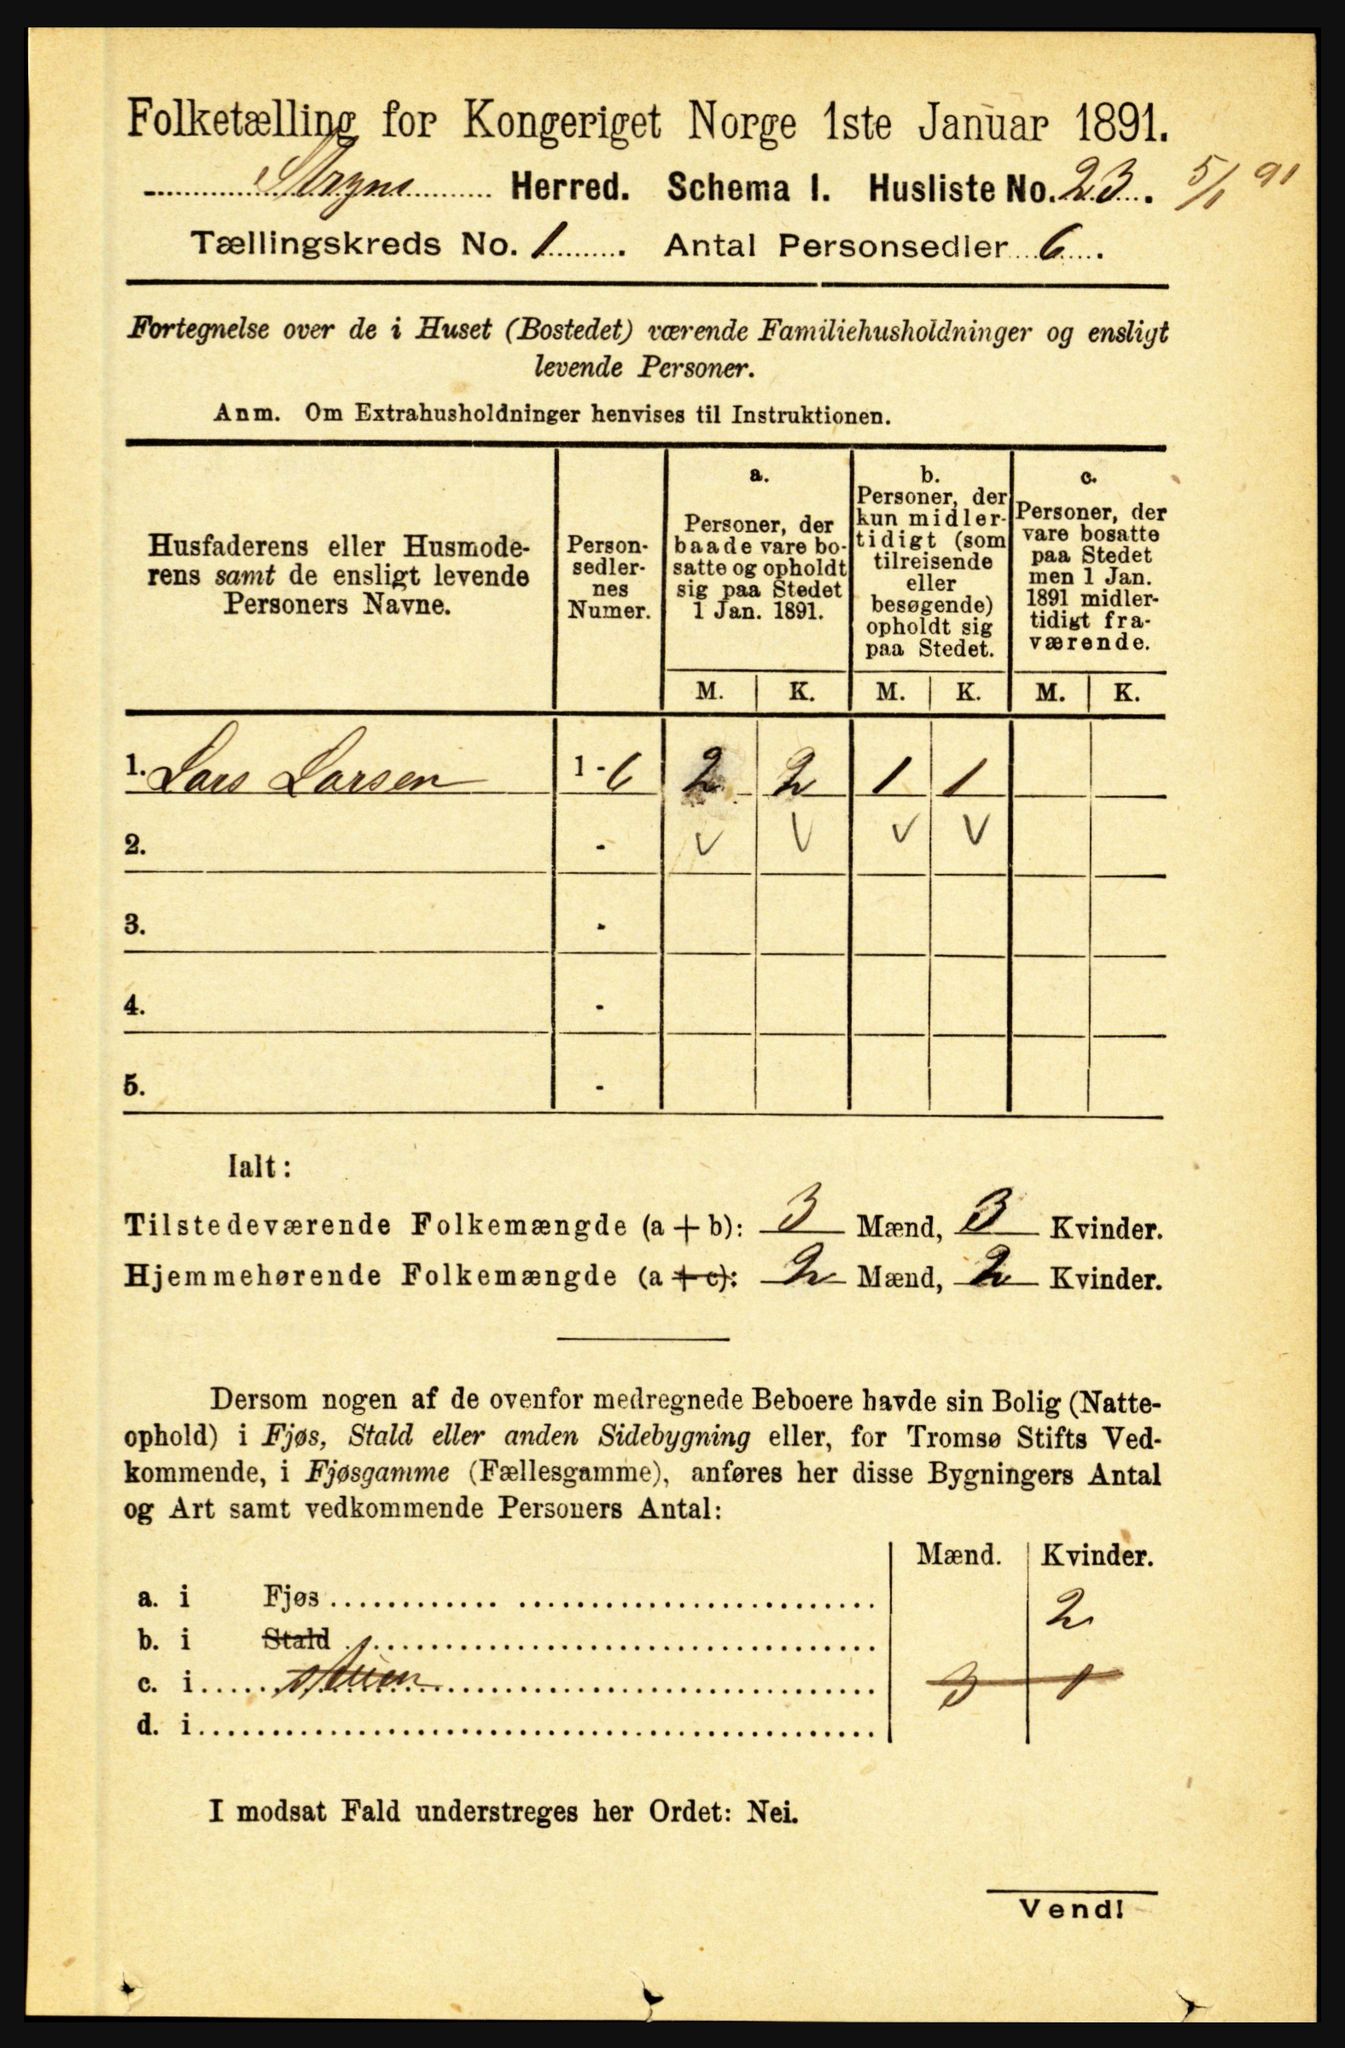 Folketælling for Kongeriget Norge 1ste Januar 1891.
Stryns Herred. Schema I. Husliste No. 23. 5/1 91
Tællingskreds No. 1. Antal Personsedler 6.
Fortegnelse over de i Huset (Bostedet) værende Familiehusholdninger og ensligt
levende Personer.
Anm. Om Extrahusholdninger henvises til Instruktionen.
Husfaderens eller Husmode-
rens samt de ensligt levende
Personers Navne.
Person-
sedler-
nes
Numer.
a.
Personer, der
baade vare bo-
satte og opholdt
sig paa Stedet
1 Jan. 1891.
b.
Personer, der
kun midler-
tidigt (som
tilreisende
eller
besøgende)
opholdt sig
paa Stedet.
c.
Personer, der
vare bosatte
paa Stedet
men 1 Jan.
1891 midler-
tidigt fra-
værende.
M. K. M. K. M. K.
1. Lars Larsen 1 - 6 2 2 1 1
2. - V V V V
3. -
4. -
5. -
Ialt:
Tilstedeværende Folkemængde (a + b): 3 Mænd, 3 Kvinder.
Hjemmehørende Folkemængde (a + c): 2 Mænd, 2 Kvinder.
Dersom nogen af de ovenfor medregnede Beboere havde sin Bolig (Natte-
ophold) i Fjøs, Stald eller anden Sidebygning eller, for Tromsø Stifts Ved-
kommende, i Fjøsgamme (Fællesgamme), anføres her disse Bygningers Antal
og Art samt vedkommende Personers Antal:
Mænd. Kvinder.
a. i Fjøs 2
b. i Stald
c. i 3 1
d. i
I modsat Fald understreges her Ordet: Nei.
Vend!